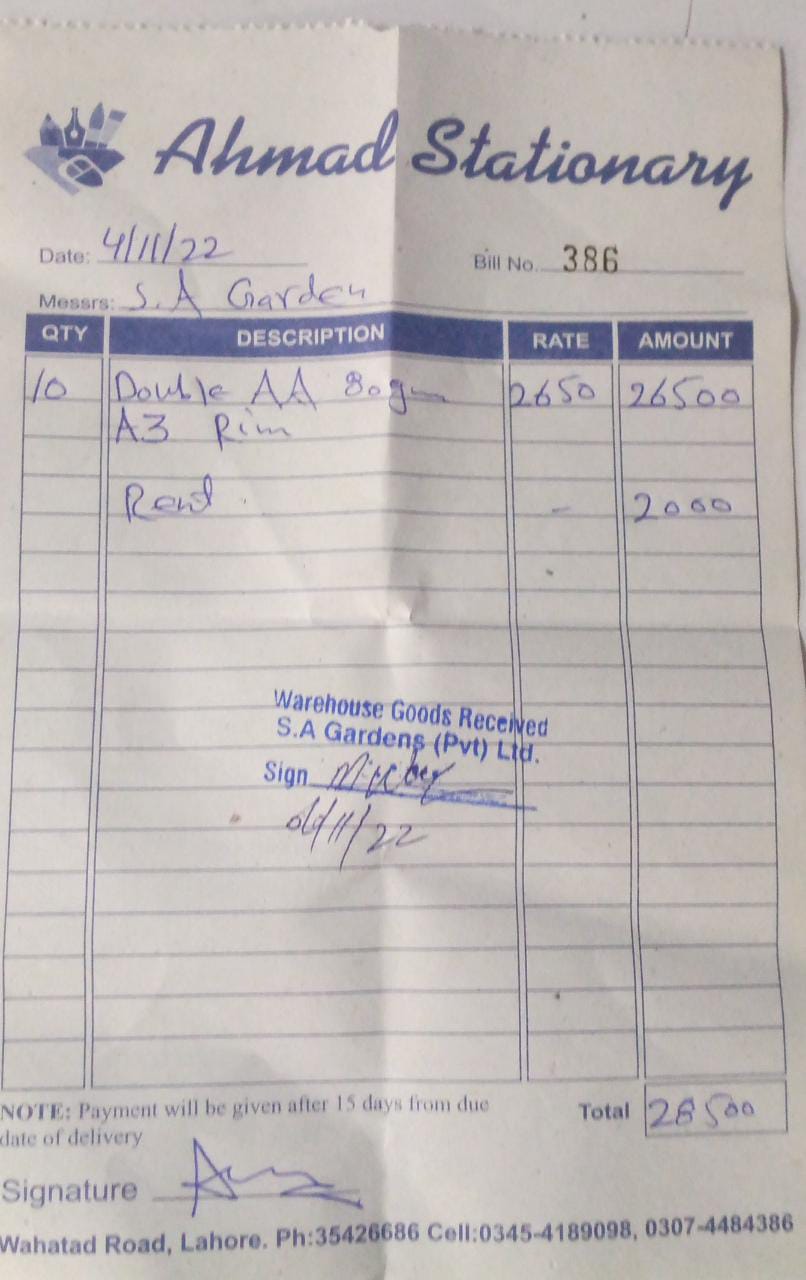 Ahmad Stationary
Date: 4/11/22 Bill No. 386
Messrs: S.A Garden
QTY DESCRIPTION RATE AMOUNT
10 Double AA 80gm 2650 26500
A3 Rim
Rent - 2000
Warehouse Goods Received
S.A Gardens (Pvt) Ltd.
Sign
/11/22
NOTE: Payment will be given after 15 days from due Total 28500
date of delivery
Signature
Wahatad Road, Lahore. Ph:35426686 Cell:0345-4189098, 0307-4484386